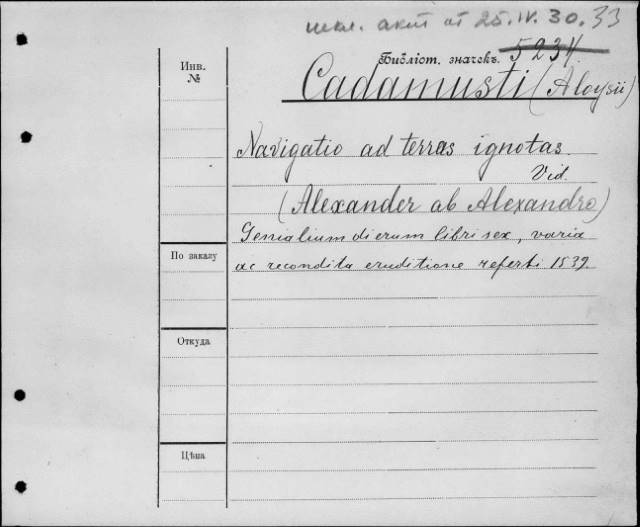 искл. акт от 25.IV.30. 33
Библіот. значекъ. 5234
Инв.
№
Cadamusti (Aloysii)
Navigatio ad terras ignotas.
Vid.
(Alexander ab Alexandro)
Genialium dierum libri sex, varia
ac recondita eruditione referti 1539
По заказу
Откуда
Цѣна